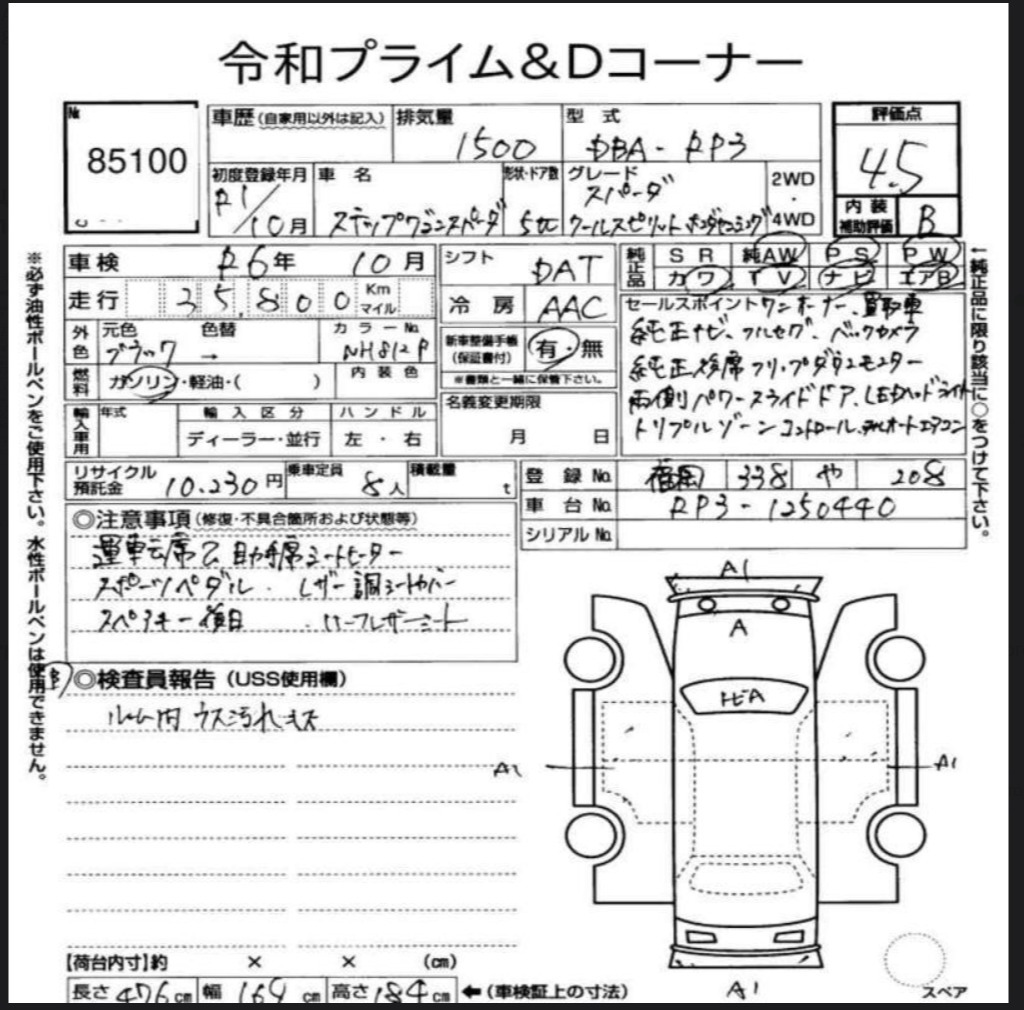 令和プライム&Dコーナー
№
85100
車歴(自家用以外は記入)
排気量
1500
型 式
DBA-RP3
評価点
4.5
初度登録年月
R1/10月
車 名
ステップワゴンスパーダ
形状・ドア数
5
グレード
スパーダ
クールスピリットホンダセンシング
2WD
4WD
内装補助評価
B
※必ず油性ボールペンをご使用下さい。水性ボールペンは使用できません。
車検
R6年 10月
シフト
DAT
純正品
SR 純AW PS PW
カワ TV ナビ エアB
←純正品に限り該当に○をつけて下さい。
走行
35,800
Km
マイル
冷房
AAC
セールスポイント
ワンオーナー、買取車
純正ナビ、フルセグ、バックカメラ
純正後席フリップダウンモニター
両側パワースライドドア、LEDヘッドライト
トリプルゾーンコントロール オートエアコン
外色
元色
ブラック
色替
→
カラーNo.
NH812P
新車整備手帳
(保証書付)
有・無
※書類と一緒に保管下さい。
燃料
ガソリン・軽油・( )
内装色
名義変更期限
月 日
輸入車用
年式
輸入区分
ディーラー・並行
ハンドル
左・右
リサイクル預託金
10.230円
乗車定員
8人
積載量
t
登録No.
福岡 338 や 208
車台No.
RP3-1250440
シリアルNo.
◎注意事項(修復・不具合箇所および状態等)
運転席 助手席シートヒーター
スポーツペダル. レザー調シートカバー
スペアキー後日 . ハーフレザーシート
◎検査員報告(USS使用欄)
ルーム内 ウス汚れキズ
A1
A
トビA
A1
A1
A1
スペア
【荷台内寸】約 × × (cm)
長さ476cm 幅169cm 高さ184cm ←(車検証上の寸法)